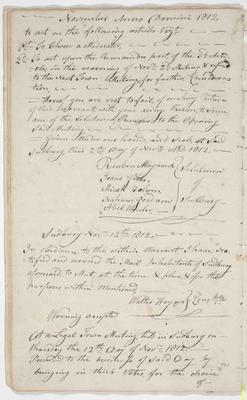 November Anno Domini 1812
to act on the following articles Vizt
1st To Chose a Moderator,
2d To act upon the Remainder part of the 3d Arti-
cle in the warning of Novr 2d Meeting & refered
to the Next Town Meeting for further Consideera
tion
And you are not to fail of making return
of this Warrant with your doings thereon to some
one of the Selectmen Previous to the Opening
Said Meeting
Given Under our hands and Seals at Said
Sudbury this 2d Day of Novr AD 1812
Reuben Maynard
Jonas
Micah
Nahum Goodnow
Abel Wheeler
Selectmen
of
Sudbury
Sudbury Novr 12th 1812
In Obedience to the within Warrant I have No-
tified and warned the Male Inhabitants of Sudbury
aforesaid to Meet at the time & place & for the
purposes within Mentioned
Walter Haynes Constable
Warning accepted
At a Legal Town Meeting held in Sudbury on
thursday the 12th Day of Novr 1812
Proceeded to the business of Said Day by
bringing in their Votes, for the choice
of